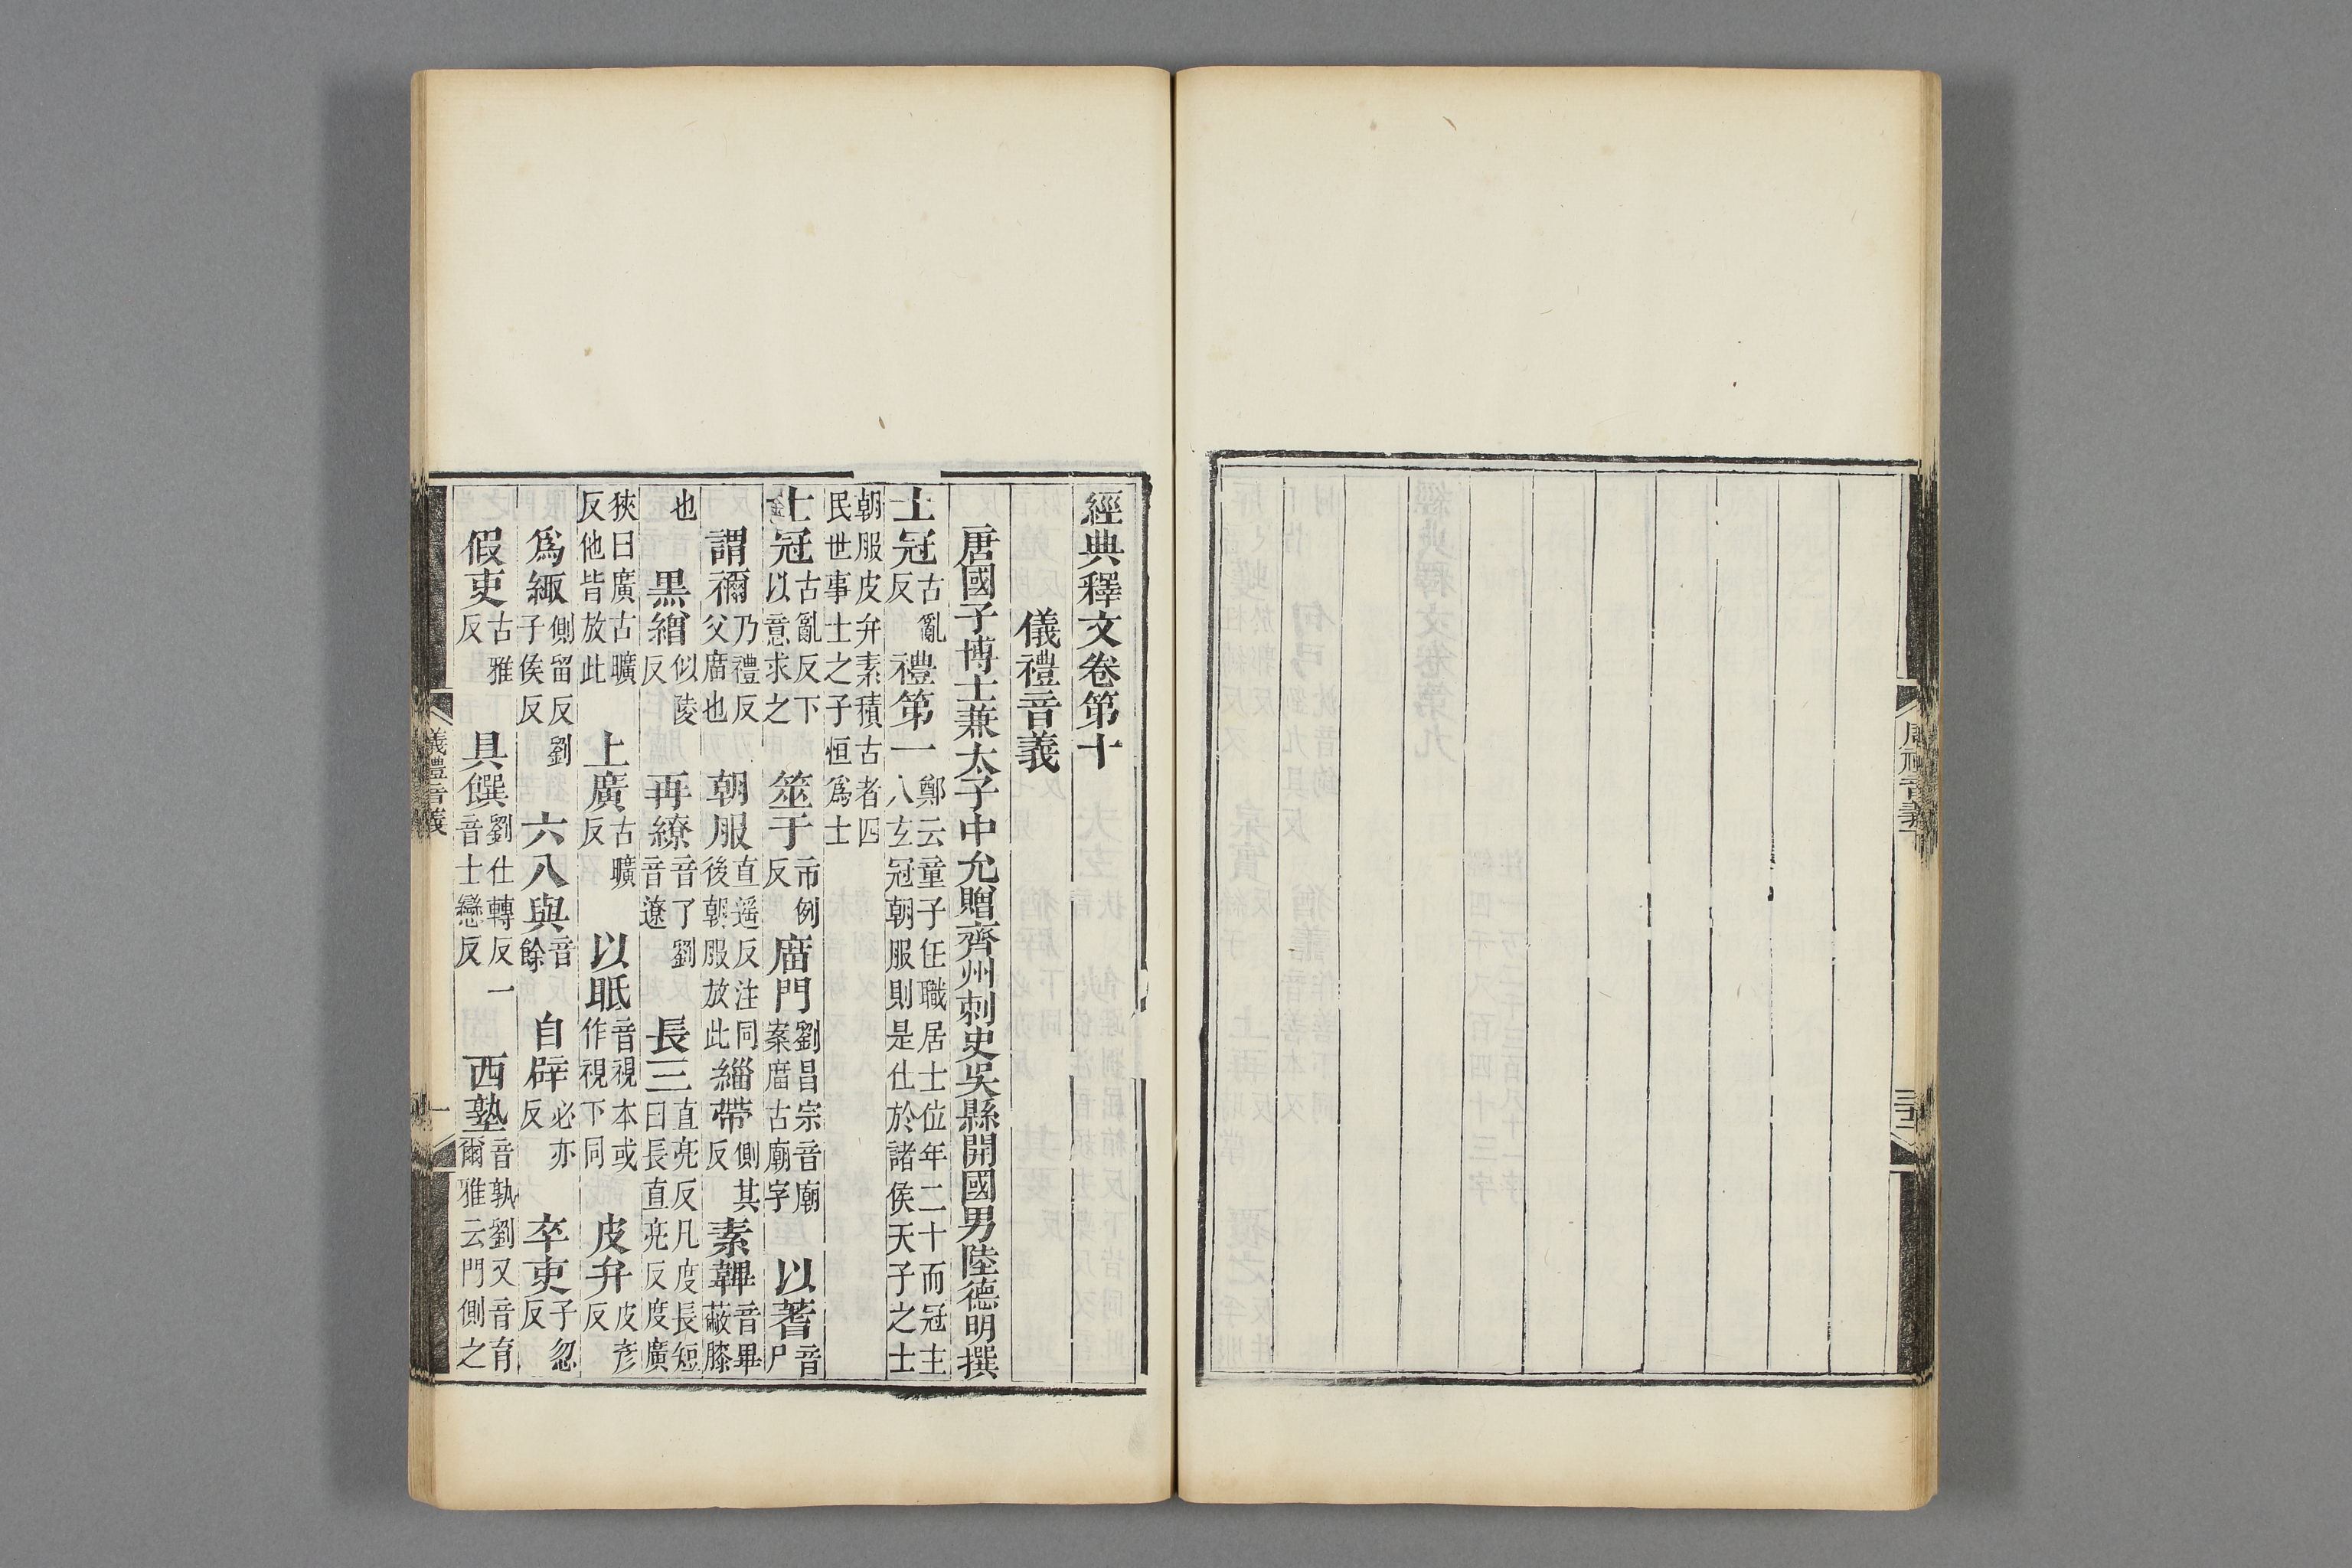 周禮音義下
三十二
經典釋文卷第十
儀禮音義
唐國子博士兼太子中允贈齊州刺史吳縣開國男陸德明撰
士冠古亂反禮第一鄭云童子任職居士位年二十而冠主人玄冠朝服則是仕於諸侯天子之士
朝服皮弁素積古者四民世事士之子恒爲士
士冠古亂反下以意求之筮于市例反庿門劉昌宗音廟案庿古廟字以蓍音尸
謂禰乃禮反父廣也朝服直遥反注同後朝服放此緇帶側其反素韠音畢蔽膝
也黑繒似陵反再繚音了劉音遼長三直亮反凡度長短曰長直亮反度廣
狹曰廣古曠反他皆放此上廣古曠反以眂音視本或作視下同皮弁皮彦反
爲緅側留反劉子侯反六八與音餘自辟必亦反卒吏子忽反
假吏古雅反具饌劉仕轉反一音士戀反西塾音孰劉又音育爾雅云門側之
儀禮音義
一